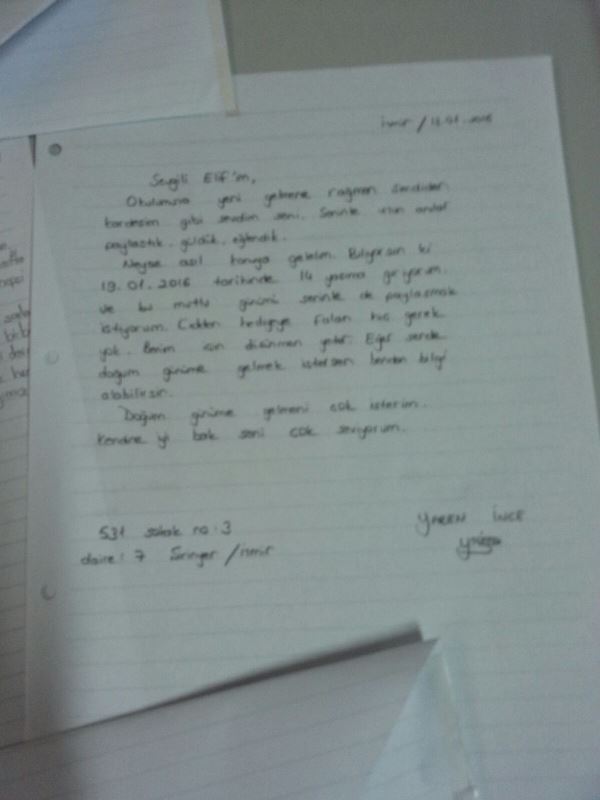 İzmir / 13.01.2016
Sevgili Elif'im,
Okulumuza yeni gelmene rağmen
kardeşim gibi sevdim seni. Seninle uzun anılar
paylaştık, güldük, eğlendik.
Neyse asıl konuya gelelim. Biliyorsun ki
19.01.2016 tarihinde 14 yaşıma giriyorum
ve bu mutlu günümü seninle de paylaşmak
istiyorum. Cidden hediyeye falan hiç gerek
yok. Benim için düşünmen yeter. Eğer sende
doğum günüme gelmek istersen benden bilgi
alabilirsin.
Doğum günüme gelmeni çok isterim.
Kendine iyi bak seni çok seviyorum.
531 sokak no: 3
daire: 7 Şirinyer / İzmir
YAREN İNCE